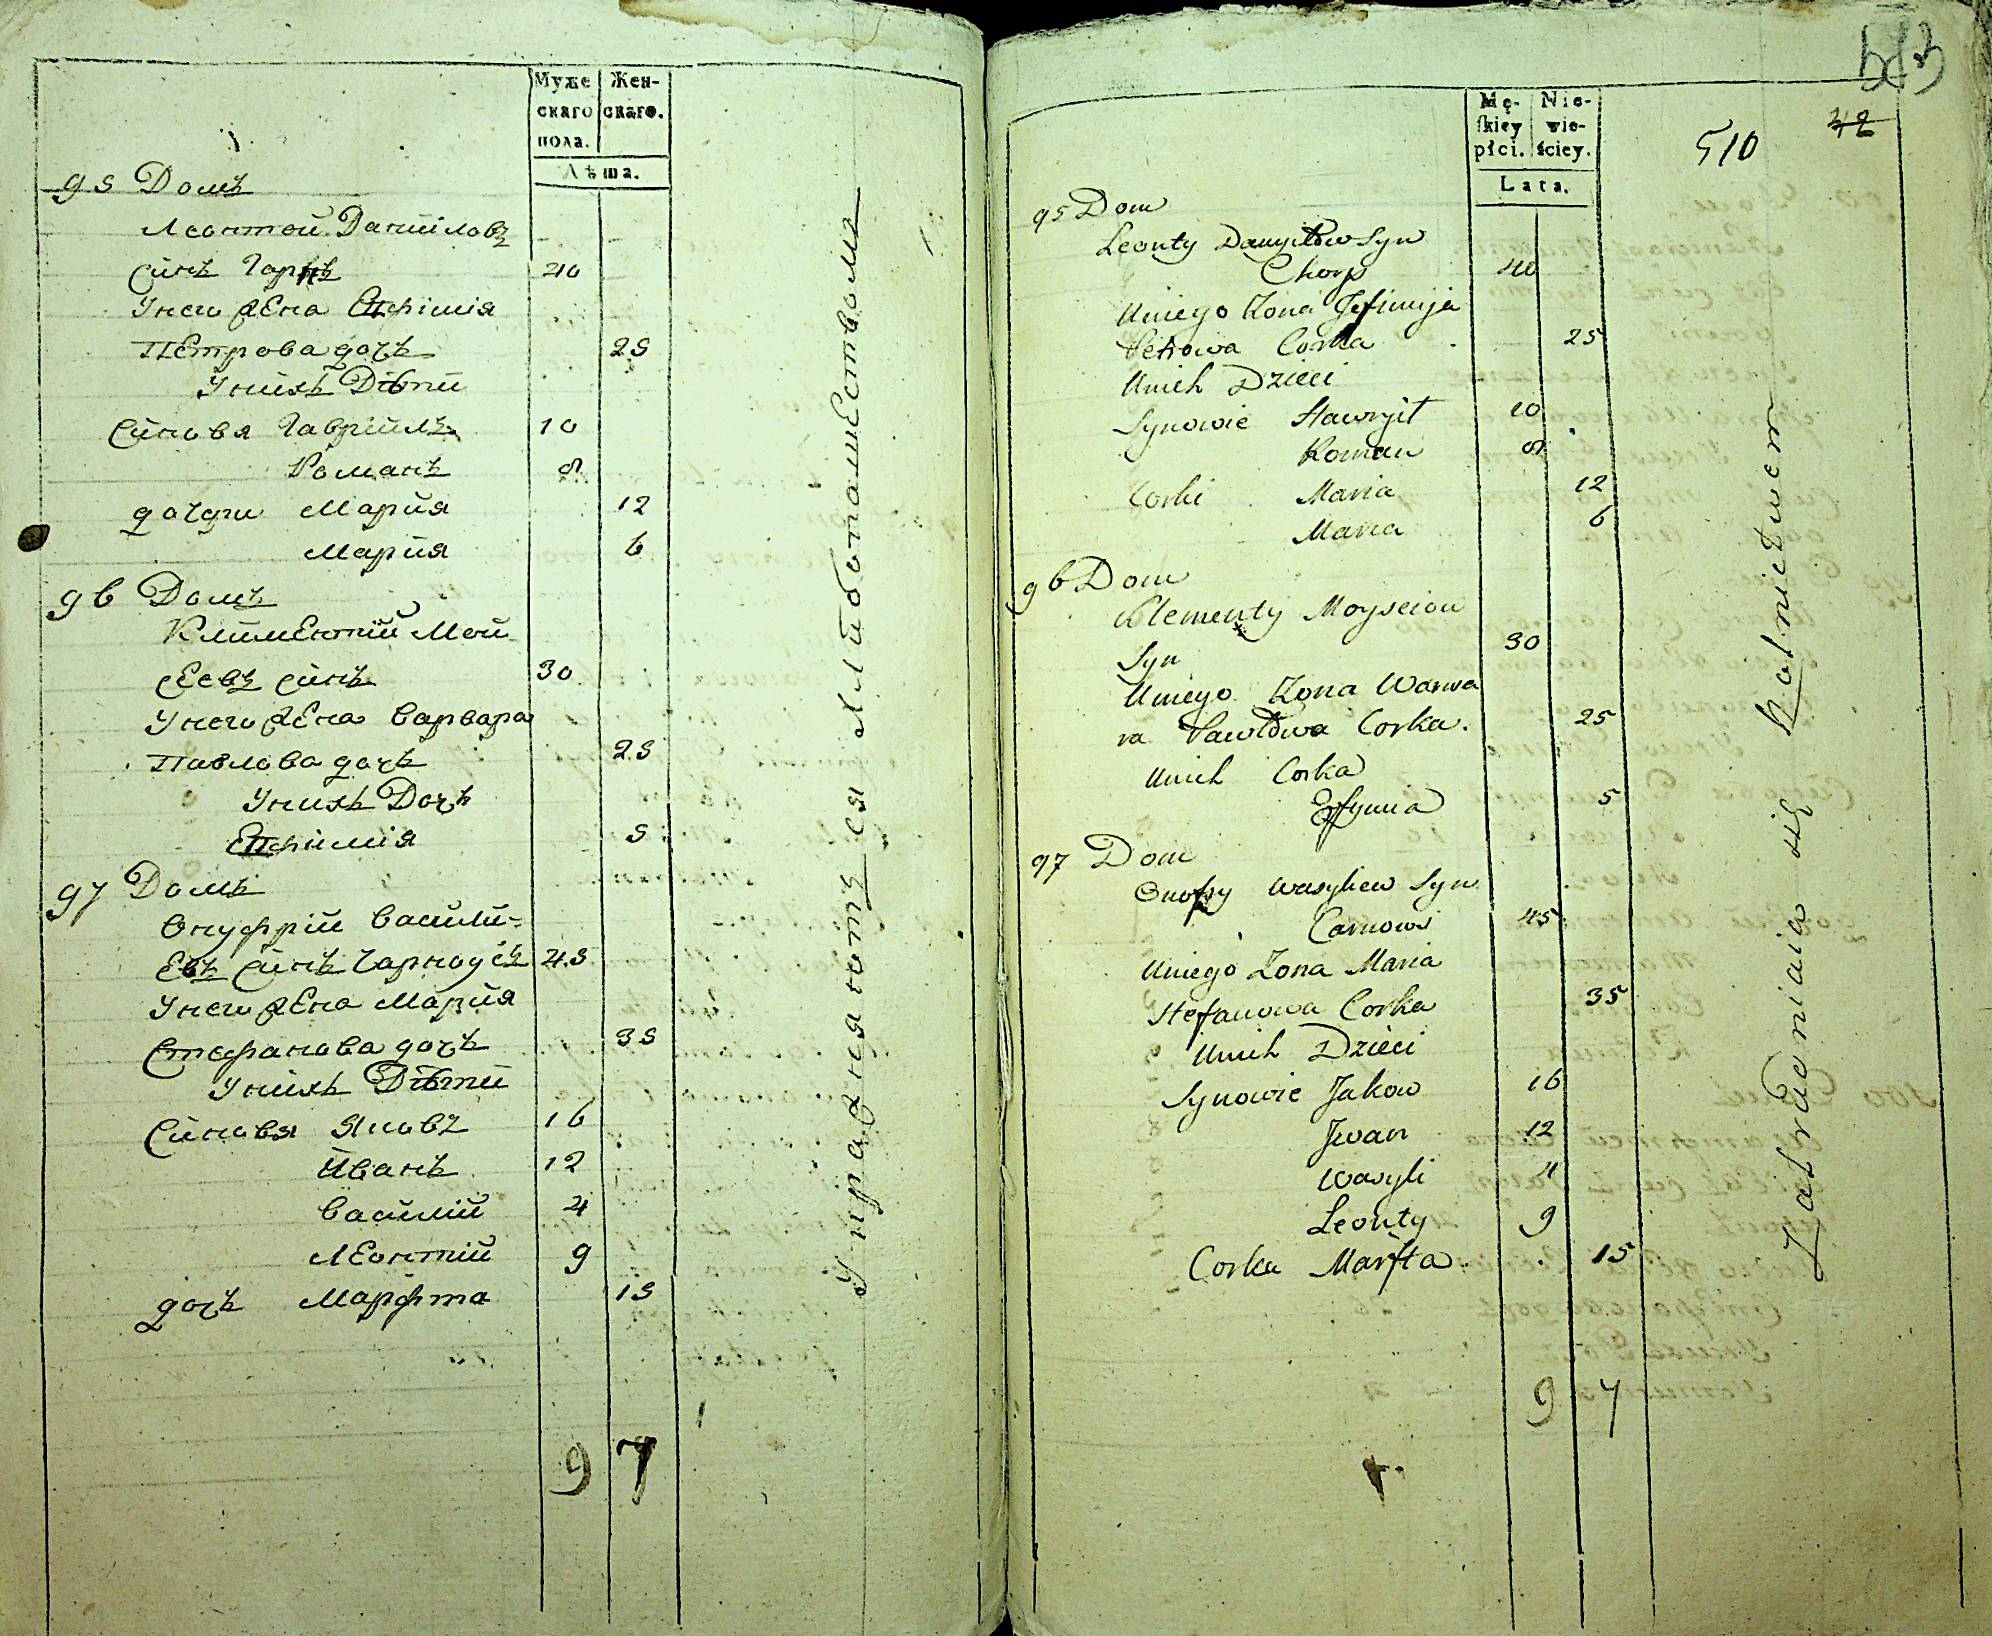 Муже
скаго
пола.
Жен-
скаго.
Лѣта.
95 Домъ
Леонтой Данйловъ
Сйнъ 40
Унего жена Епфімія
Петрова дочь 25
Унйхъ Дѣтй
Сйновя Гаврйилъ 10
Романъ 8
дочери Марйя 12
Марйя 6
96 Домъ
Клйментій Мой
сеевъ сйнъ 30
Унего жена Варвара
Павлова дочь 25
Унихъ Дочь
Епфімія 5
97 Домъ
Онуфрій Васйлй-
Евъ Сйнъ Чарноусъ 45
Унего жена Марйя
Стефанова дочь 35
Унйхъ Дѣтй
Сйновя Яковъ 16
Йванъ 12
Васйлій 4
Леонтій 9
дочь Марфта 15
9 7
Упражняютъ ся хлйбопашествомъ
Mę-
skiey
płci.
Nie-
wie-
ściey.
Lata.
510
42
95 Dom
Leonty Danyłow Syn
40
Uniego Zona Jefimija
Petrowa Corka 25
Unich Dzieci
Synowie Hawryił 10
Roman 8
Corki Maria 12
Maria 6
96 Dom
Klementy Moyseiow
Syn 30
Uniego Zona Warwa
ra Pawłowa Corka. 25
Unich Corka
5
97 Dom
Onofry Wasyliew Syn
Carnows 45
Uniego Zona Maria
Stefanowa Corka 35
Unich Dzieci
Synowie Jakow 16
Jwan 12
Wasyli 4
Leonty 9
Corka Marfta 15
9 7
Zatrudniaia się Rolnictwem